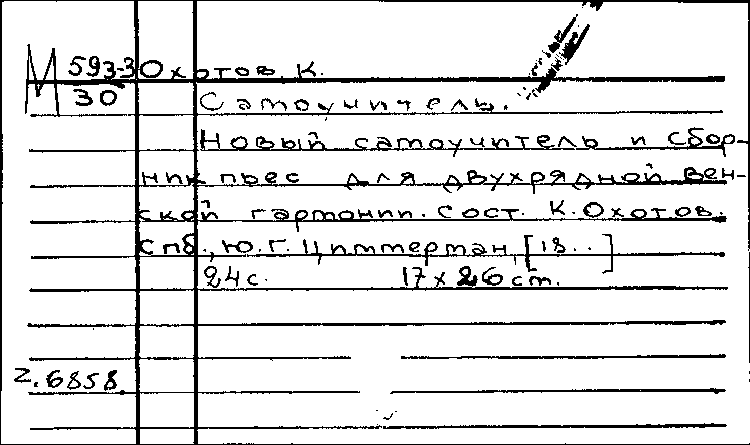 М 593-3 Охотов, К.
30 Самоучитель.
Новый самоучитель и сбор-
ник пьес для двухрядной вен-
ской гармонии. Сост. К. Охотов.
Спб., Ю.Г. Циммерман, [18..]
24 с. 17 x 26 cm.
2.6858